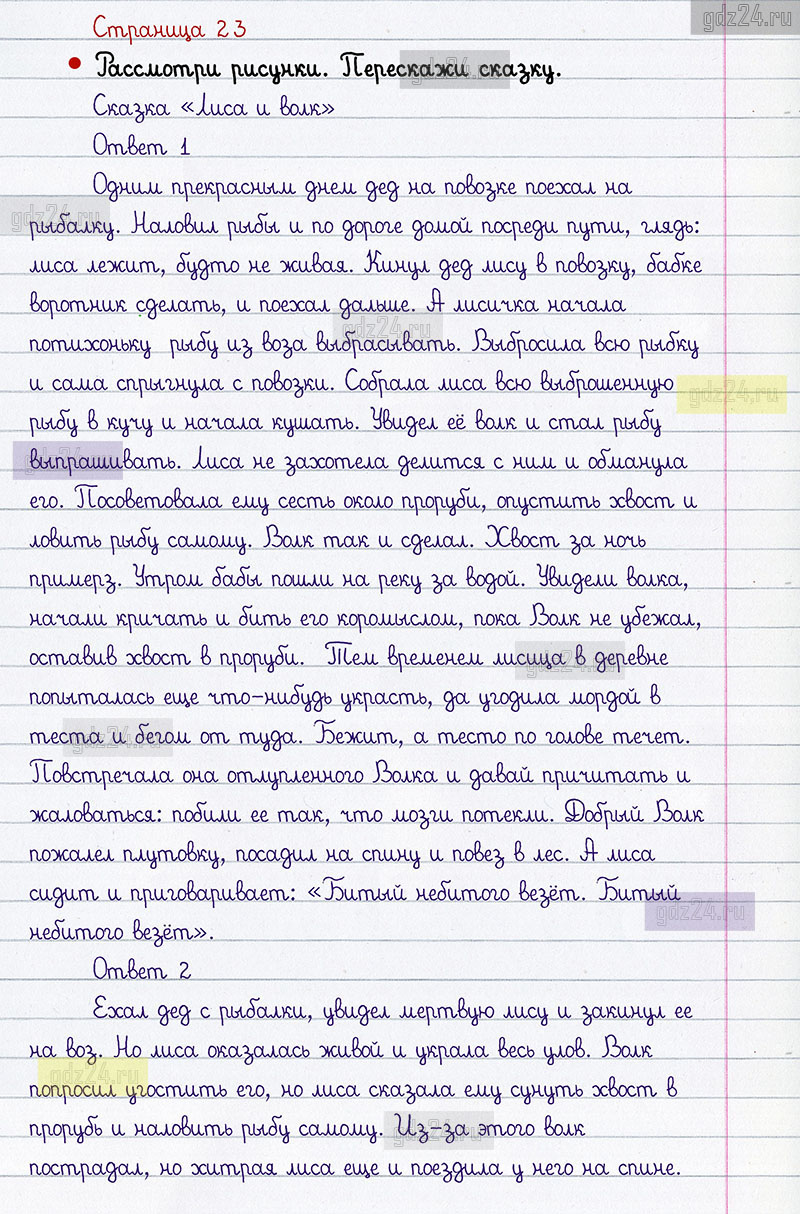 gdz24.ru
Страница 23
• Рассмотри рисунки. Перескажи сказку.
gdz24.ru
Сказка «Лиса и волк»
Ответ 1
Одним прекрасным днем дед на повозке поехал на
gdz24.ru
рыбалку. Наловил рыбы и по дороге домой посреди пути, глядь:
лиса лежит, будто не живая. Кинул дед лису в повозку, бабке
воротник сделать, и поехал дальше. А лисичка начала
gdz24.ru
потихоньку рыбу из воза выбрасывать. Выбросила всю рыбку
и сама спрыгнула с повозки. Собрала лиса всю выброшенную
gdz24.ru
рыбу в кучу и начала кушать. Увидел её волк и стал рыбу
gdz24.ru
выпрашивать. Лиса не захотела делится с ним и обманула
его. Посоветовала ему сесть около проруби, опустить хвост и
ловить рыбу самому. Волк так и сделал. Хвост за ночь
примерз. Утром бабы пошли на реку за водой. Увидели волка,
начали кричать и бить его коромыслом, пока Волк не убежал,
оставив хвост в проруби. Тем временем лисица в деревне
gdz24.ru
попыталась еще что-нибудь украсть, да угодила мордой в
теста и бегом от туда. Бежит, а тесто по голове течет.
gdz24.ru
Повстречала она отлупленного Волка и давай причитать и
жаловаться: побили ее так, что мозги потекли. Добрый Волк
пожалел плутовку, посадил на спину и повез в лес. А лиса
сидит и приговаривает: «Битый небитого везёт. Битый
gdz24.ru
небитого везёт».
Ответ 2
Ехал дед с рыбалки, увидел мертвую лису и закинул ее
на воз. Но лиса оказалась живой и украла весь улов. Волк
gdz24.ru
попросил угостить его, но лиса сказала ему сунуть хвост в
прорубь и наловить рыбу самому. Из-за этого волк
gdz24.ru
пострадал, но хитрая лиса еще и поездила у него на спине.